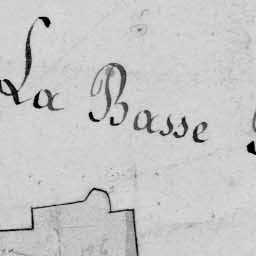 La Basse